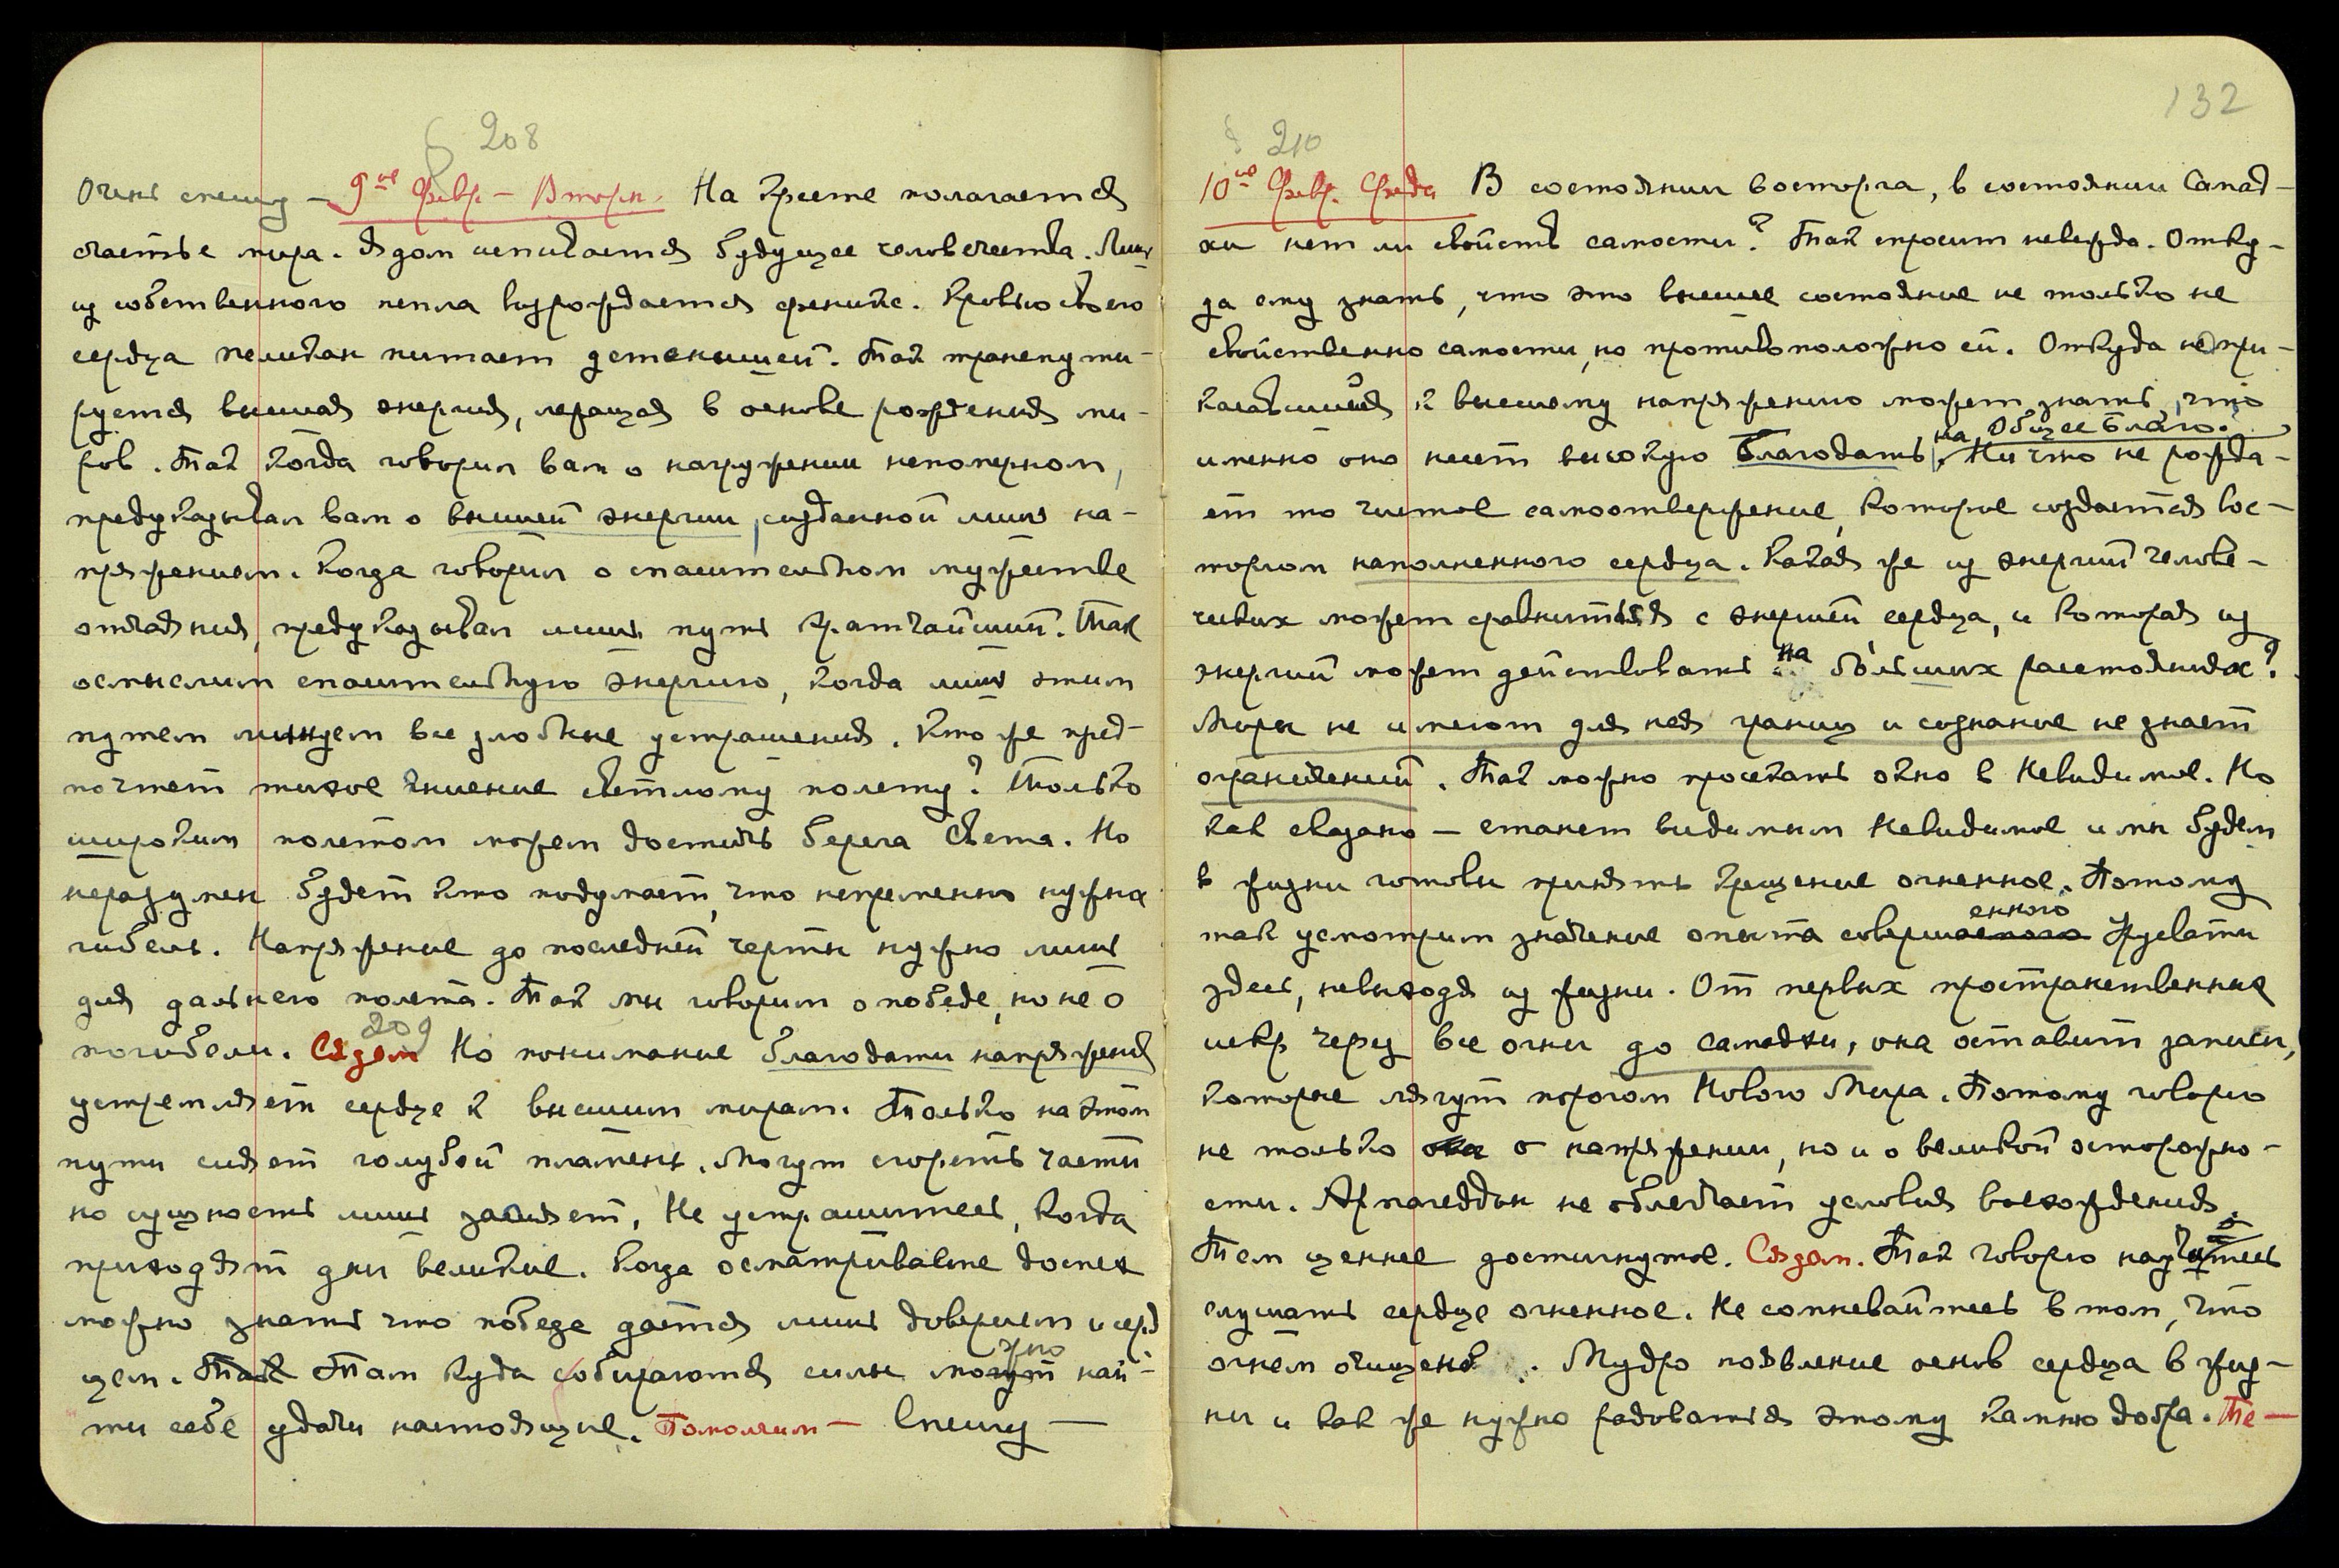 § 208
Очень спешу — 9ое Февр — Вторн. На кресте полагается
счастье мира. Ядом испивается будущее человечества. Лишь
из собственного пепла возрождается феникс. Кровью своего
сердца пеликан питает детенышей. Так трансмути-
руется высшая энергия, лежащая в основе рождения ми-
ров. Так когда говорил вам о нагружении непомерном,
предуказывал вам о высшей энергии, созданной лишь на-
пряжением. Когда говорил о спасительном мужестве
отчаяния, предуказывал лишь путь кратчайший. Так
осмыслим спасительную энергию, когда лишь этим
путем минуем все злобные устрашения. Кто же пред-
почтет тихое гниение светлому полету? Только
широким полетом можем достичь берега Света. Но
неразумен будет кто подумает, что непременно нужна
гибель. Напряжение до последней черты нужно лишь
для дальнего полета. Так мы говорим о победе, но не о
погибели. Сядем 209 Но понимание благодати напряжения
устремляет сердце к высшим мирам. Только на этом
пути сияет голубой пламень. Могут сгореть части
но сущность лишь засияет, Не устрашитесь, когда
приходят дни великие. Когда осматриваете доспех
можно знать что победа дается лишь доверием и серд
жно
цем. Так Там куда собираются силы могут най-
ти себе удачи настоящие. Помолчим — Спешу —
132
§ 210
10ое Февр. Среда В состоянии восторга, в состоянии Самад-
хи нет ли свойств самости? Так спросит невежда. Отку-
да ему знать, что это высшее состояние не только не
свойственно самости, но противоположно ей. Откуда не при-
касавшийся к высшему напряжению может знать, что
на Общее Благо.
именно оно несет высокую Благодать. Ничто не рожда-
ет то чистое самоотвержение, которое создается вос-
торгом наполненного сердца. Какая же из энергий челове-
ческих может сравниться с энергией сердца, и которая из
энергий может действовать на больших расстояниях?
Миры не имеют для нея границ и сознание не знает
ограничений. Так можно просекать окно в Невидимое. Но
как сказано — станет видимым Невидимое и мы будем
в жизни готовы принять крещение огненное. Потому
енного
так усмотрим значение опыта совершаемого Урусвати
здесь, не выходя из жизни. От первых пространственных
искр через все огни до самадхи, она оставит записи,
которые лягут порогом Нового Мира. Потому говорю
не только о напряжении, но и о великой осторожно-
сти. Армагеддон не облегчает условия восхождения.
Тем ценнее достигнутое. Сядем. Так говорю научитесь
слушать сердце огненное. Не сомневайтесь в том, что
огнем очищено. Мудро появление основ сердца в жиз-
ни и как же нужно радоваться этому камню добра. Те—